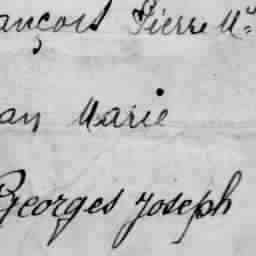 ançois Pierre M
an Marie
Georges Joseph